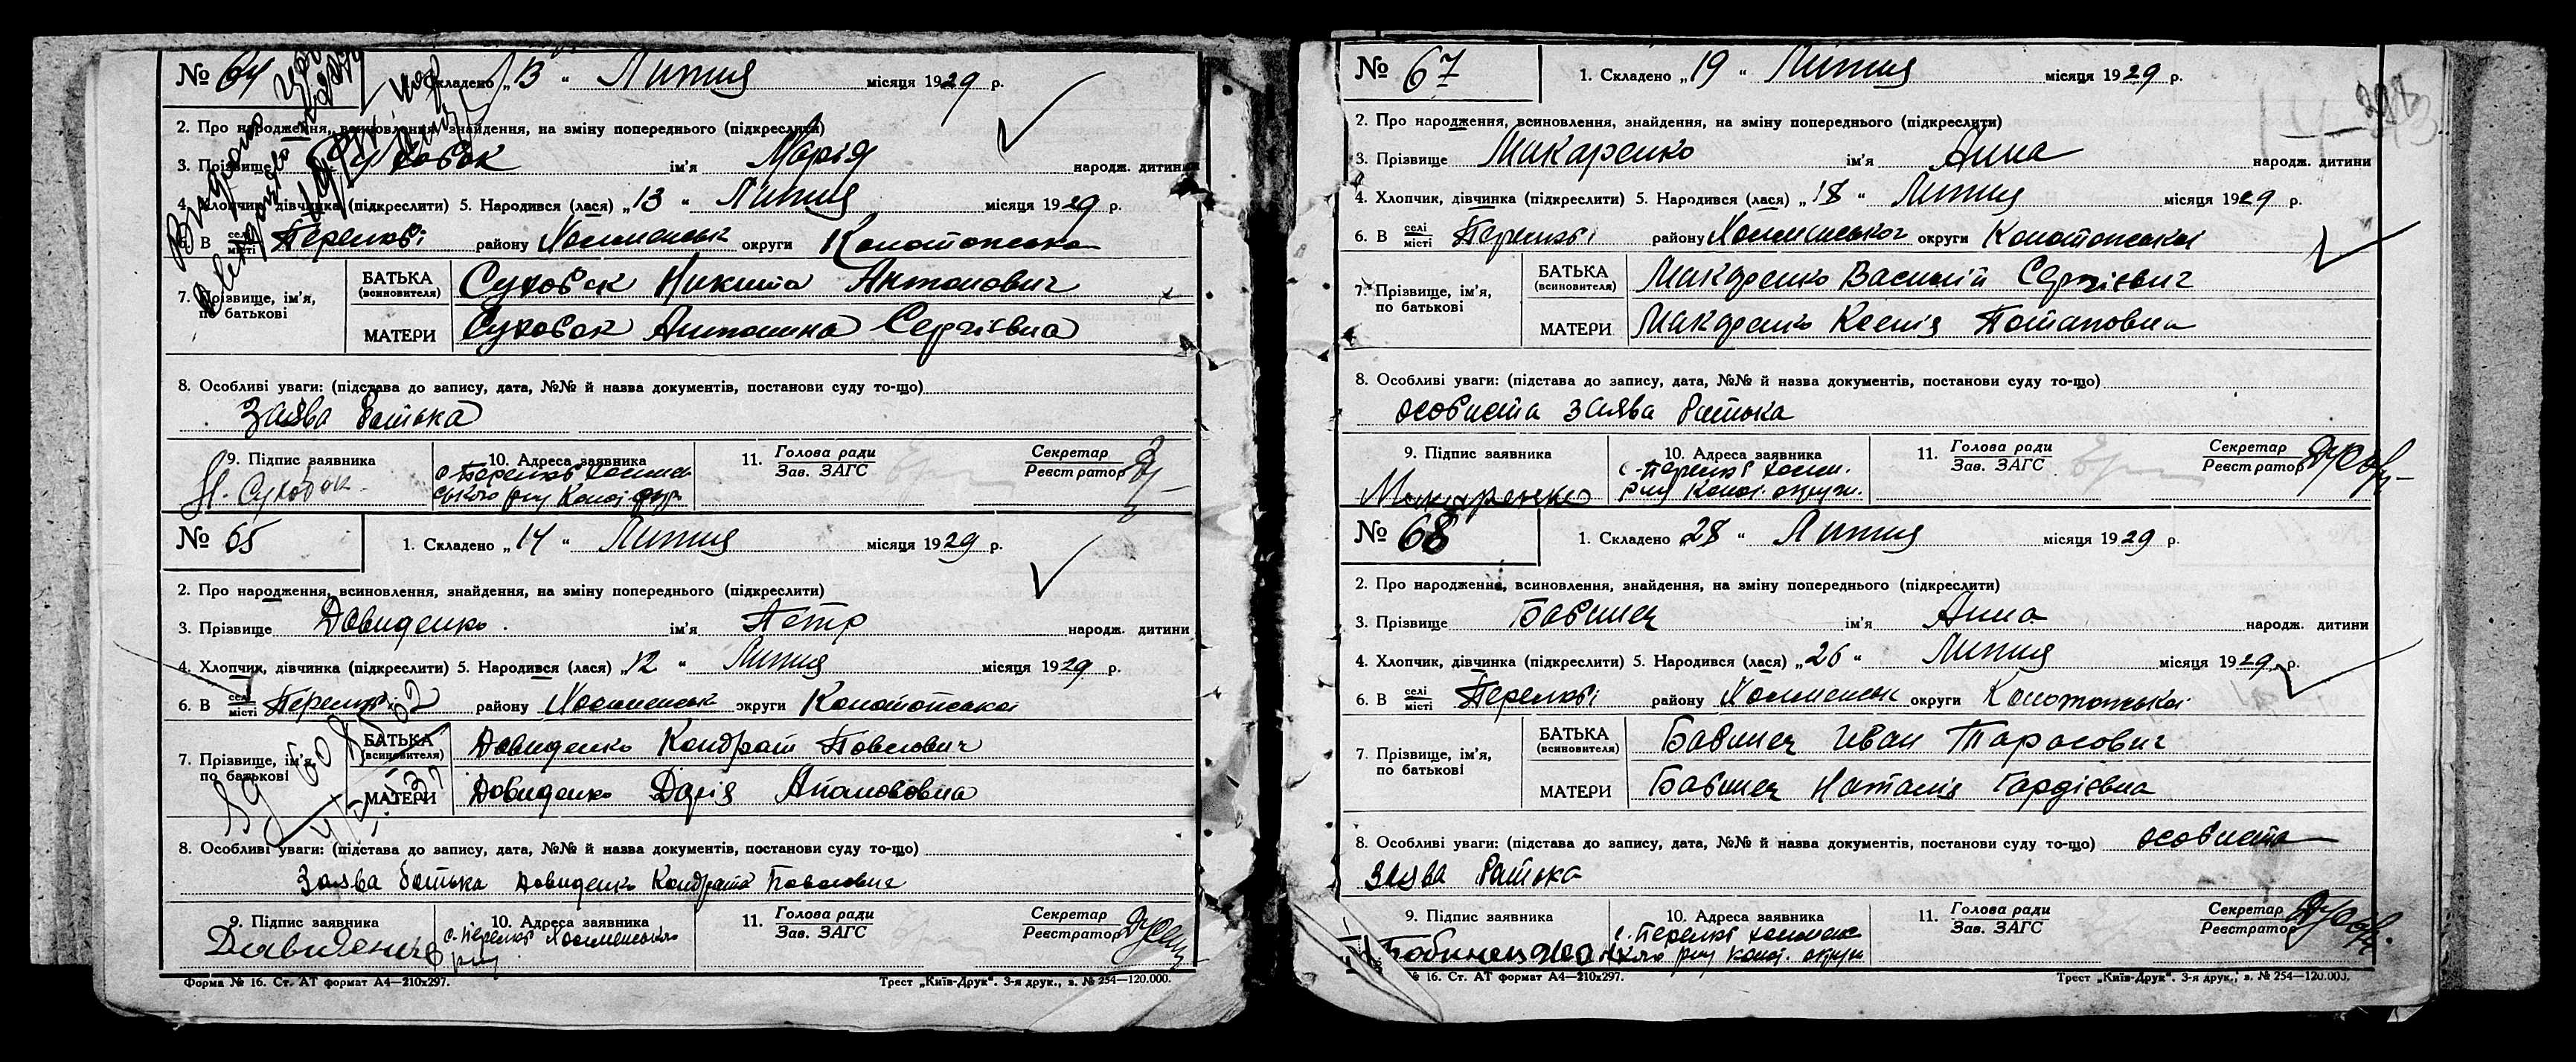 № 64
Складено „13“ Липня місяця 1929 р.
2. Про народження, всиновлення, знайдення, на зміну попереднього (підкреслити)
3. Прізвище Суховок ім'я Марія народж. дитини
4. Хлопчик, дівчинка (підкреслити) 5. Народився (лася) „13“ Липня місяця 1929 р.
6. В селі місті Перелюбі району Холменськ округи Конотопська
7. Прізвище, ім'я, по батькові
БАТЬКА (всиновителя) Суховок Никита Антонович
МАТЕРИ Суховок Антонина Сергієвна
8. Особливі уваги: (підстава до запису, дата, №№ й назва документів, постанови суду то-що)
Заява батька
9. Підпис заявника
Н. Суховок
10. Адреса заявника
с. Перелюб Холмен
ського рну Коно.
11. Голова ради
Зав. ЗАГС
Секретар
Реєстратор
№ 65
1. Складено „14“ Липня місяця 1929 р.
2. Про народження, всиновлення, знайдення, на зміну попереднього (підкреслити)
3. Прізвище Давиденко ім'я Петр народж. дитини
4. Хлопчик, дівчинка (підкреслити) 5. Народився (лася) „12“ Липня місяця 1929 р.
6. В селі місті району Холменськ округи Конотопської
7. Прізвище, ім'я, по батькові
БАТЬКА (всиновителя) Давиденко Кондрат Павлович
МАТЕРИ Давиденко Дарія
8. Особливі уваги: (підстава до запису, дата, №№ й назва документів, постанови суду то-що)
Заява батька Давиденко Кондрата Павлович
9. Підпис заявника
Давиденко
10. Адреса заявника
с. Перелюб Холменського
рну
11. Голова ради
Зав. ЗАГС
Секретар
Реєстратор
Форма № 16. Ст. АТ формат А4—210х297.
Трест „Київ-Друк“. 3-я друк., з. № 254—120.000.
№ 67
1. Складено „19“ Липня місяця 1929 р.
2. Про народження, всиновлення, знайдення, на зміну попереднього (підкреслити)
3. Прізвище Макаренко ім'я Анна народж. дитини
4. Хлопчик, дівчинка (підкреслити) 5. Народився (лася) „18“ Липня місяця 1929 р.
6. В селі місті Перелюбі району Холменської округи Конотопської
7. Прізвище, ім'я, по батькові
БАТЬКА (всиновителя) Макаренко Василій Сергієвич
МАТЕРИ Макаренко Ксенія Потаповна
8. Особливі уваги: (підстава до запису, дата, №№ й назва документів, постанови суду то-що)
особиста заява батька
9. Підпис заявника
Макаренко
10. Адреса заявника
с. Перелюб Холмен.
рну Коно. округи.
11. Голова ради
Зав. ЗАГС
Секретар
Реєстратор
№ 68
1. Складено „28“ Липня місяця 1929 р.
2. Про народження, всиновлення, знайдення, на зміну попереднього (підкреслити)
3. Прізвище Бабинец ім'я Анна народж. дитини
4. Хлопчик, дівчинка (підкреслити) 5. Народився (лася) „26“ Липня місяця 1929 р.
6. В селі місті Перелюбі району Холменськ округи Конотопської
7. Прізвище, ім'я, по батькові
БАТЬКА (всиновителя) Бабинец Иван Тарасович
МАТЕРИ Бабинец Наталія Гордієвна
8. Особливі уваги: (підстава до запису, дата, №№ й назва документів, постанови суду то-що) особиста
заява батька
9. Підпис заявника
Бобинец
10. Адреса заявника
с. Перелюб Холменс
кого рну Коно. округи
11. Голова ради
Зав. ЗАГС
Секретар
Реєстратор
№ 16. Ст. АТ формат А4—210х297.
Трест „Київ-Друк“. 3-я друк., з. № 254—120.000.